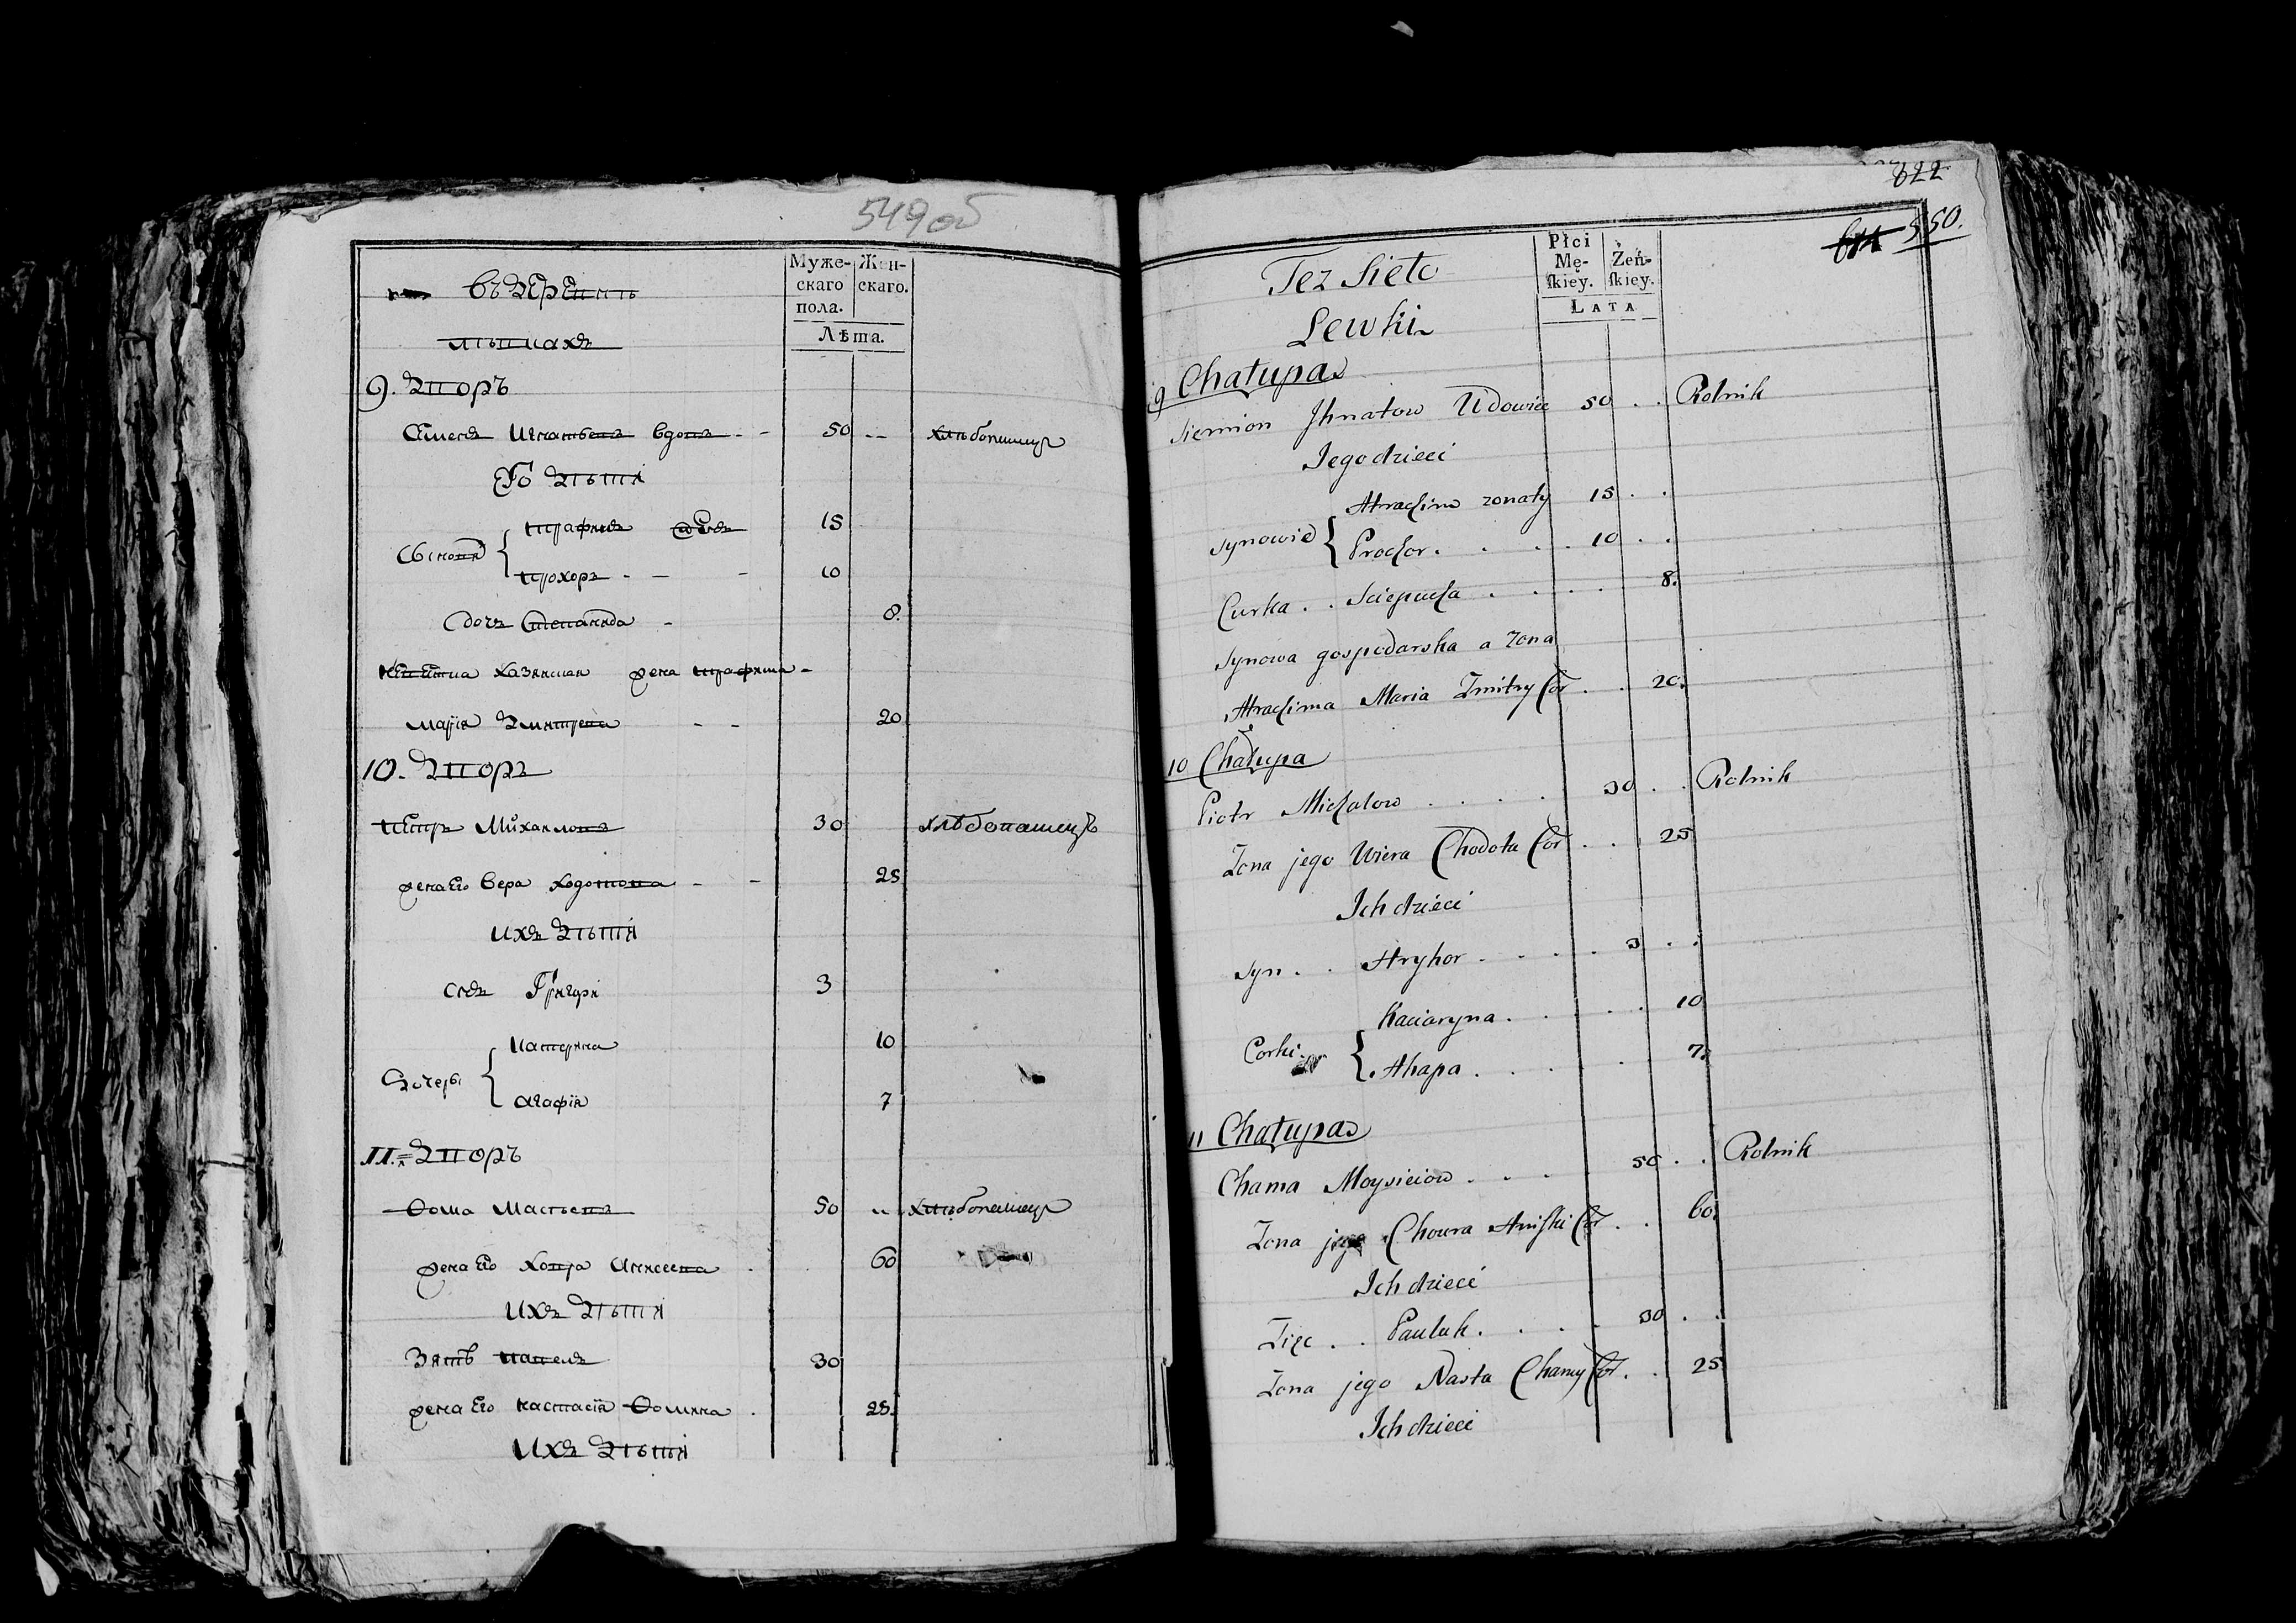 549 об
въ деревнѣ
Муже-
скаго
пола.
Жен-
скаго.
Лѣта.
9. Дворъ
Семенъ Игнатьевъ вдовъ - - 50 - - хлѣбопашецъ
Его дѣти
Сыновя { трафимъ 15
прохоръ - - - 10
дочъ Степанида - 8.
невѣстка хазяиская жена трафима -
марія дмитрева - - 20
10. дворъ
петръ Михаиловъ 30 хлѣбопашецъ
жена Его вера ходотова - - 25
ихъ дѣти
сынъ Григори 3
дочеры { катерина 10
агафія 7
11. = дворъ
Ѳома Масѣевъ 50 .. хлѣбопашецъ
жена Его ховра Аникеева 60
ихъ дѣти
Зять павелъ 30
жена Его настасія Ѳомина . 25.
ихъ дѣти
822
550.
Też Sieło
Lewki
Płci
Mę-
ſkiey.
Żeń-
ſkiey.
LATA
9 Chałupa
Siemion Jhnatow Udowiec 50 . . Rolnik
Jego dzieci
Synowie { Atrachim zonaty 15 . .
Prochor . . . . 10 . .
Curka . . Sciepucha . . . . 8.
Synowa gospodarska a Zona
Atrachima Maria Zmitry Cor . . 20.
10 Chałupa
Piotr Michalow . . . . 30 . . Rolnik
Zona jego Wiera Chodota Cor . . 25
Ich dzieci
Syn . . Hryhor . . . . 3 . .
Corki { Kaciaryna . . . . 10
Ahapa . . . . 7.
11 Chałupa
Chama Moysieiow . . . 50 . . Rolnik
Zona jego Chowra Aniski Cor . . 60.
Ich dzieci
Zięc . . Pauluk . . . . 30 . .
Zona jego Nasta Chamy Cor . . 25
Ich dzieci